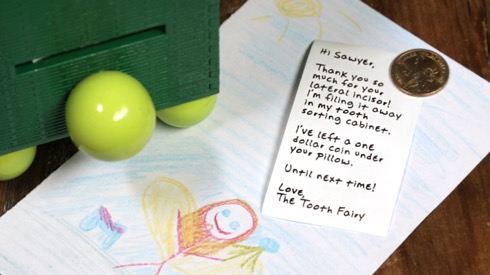 Hi Sawyer,
Thank you so
much for your
lateral incisor!
I'm filing it away
in my tooth
sorting cabinet.
I've left a one
dollar coin under
your pillow.
Until next time!
Love,
The Tooth Fairy